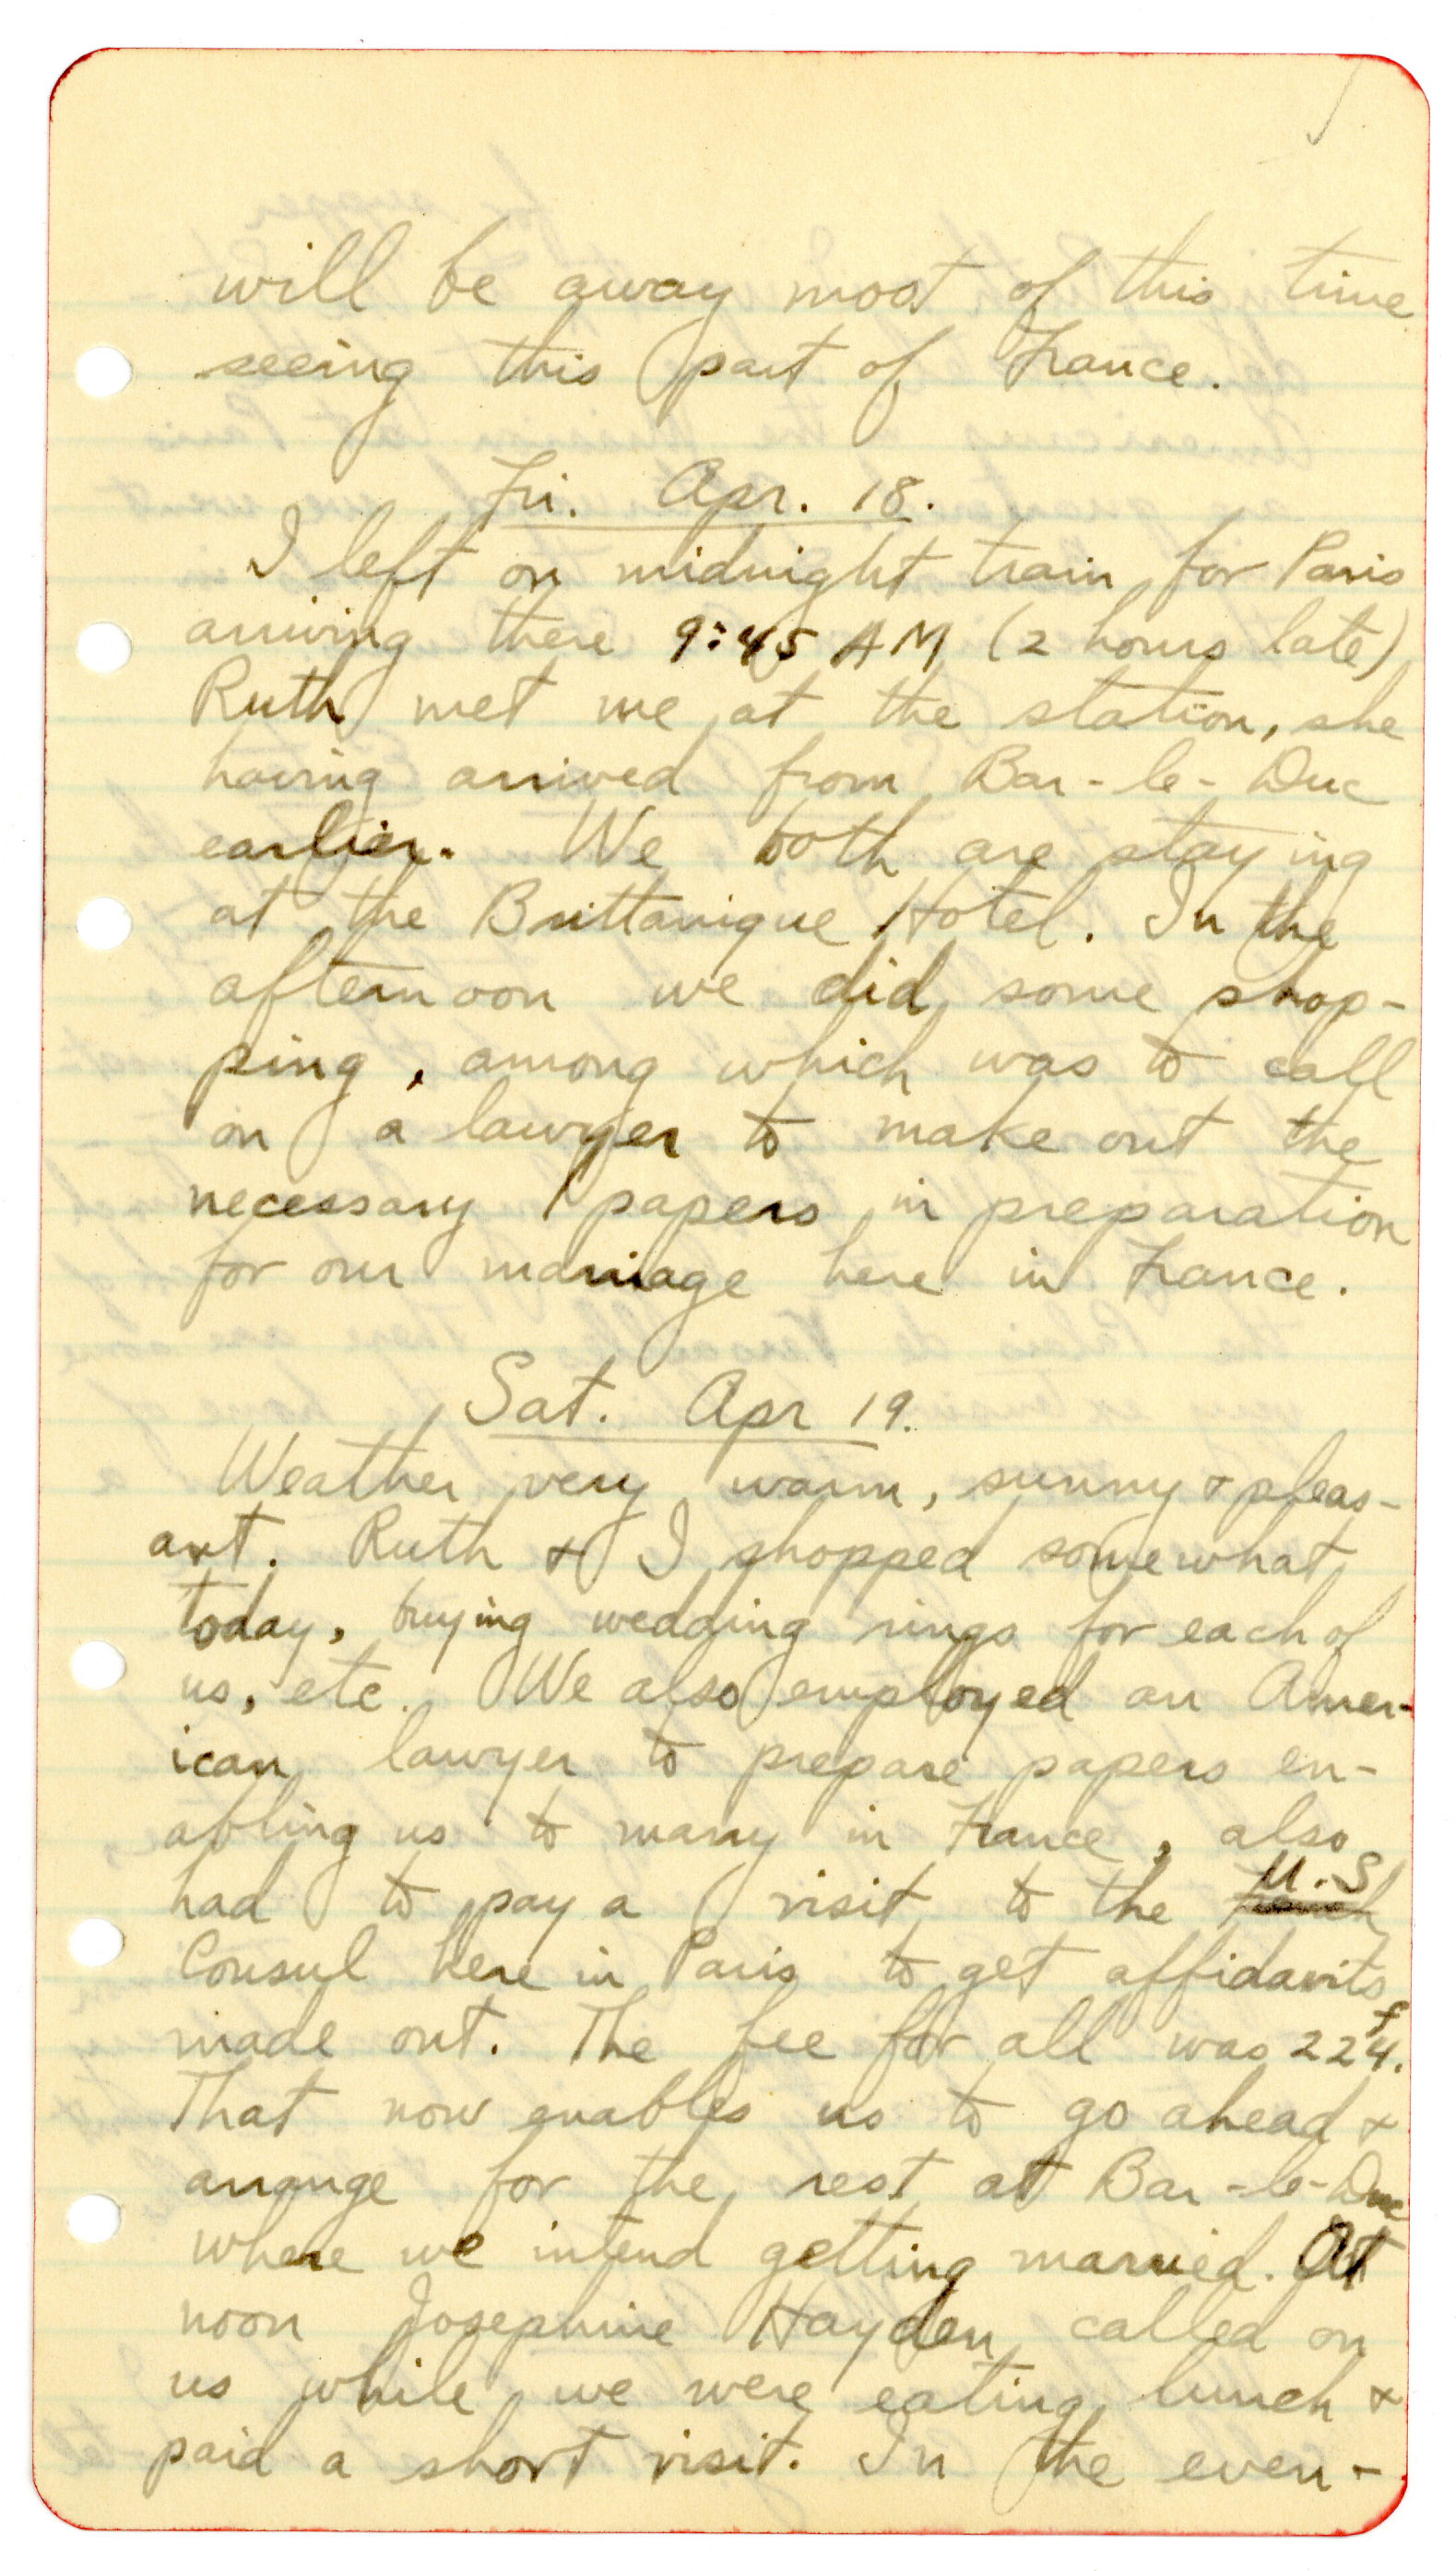 will be away most of this time
seeing this part of France.
Fri. Apr. 18.
I left on midnight train for Paris
arriving there 9:45 AM (2 hours late)
Ruth met me at the station, she
having arrived from Bar-le-Duc
earlier. We both are staying
at the Brittanique Hotel. In the
afternoon we did some shop-
ping, among which was to call
on a lawyer to make out the
necessary papers in preparation
for our marriage here in France.
Sat. Apr 19.
Weather very warm, sunny & pleas-
ant. Ruth & I shopped somewhat
today, buying wedding rings for each of
us, etc. We also employed an Amer-
ican lawyer to prepare papers en-
abling us to marry in France, also
had to pay a visit to the U.S
Consul here in Paris to get affidavits
made out. The fee for all was 224f.
That now enables us to go ahead &
arrange for the rest at Bar-le-Duc
where we intend getting married. At
noon Josephine Hayden called on
us while we were eating lunch &
paid a short visit. In the even-